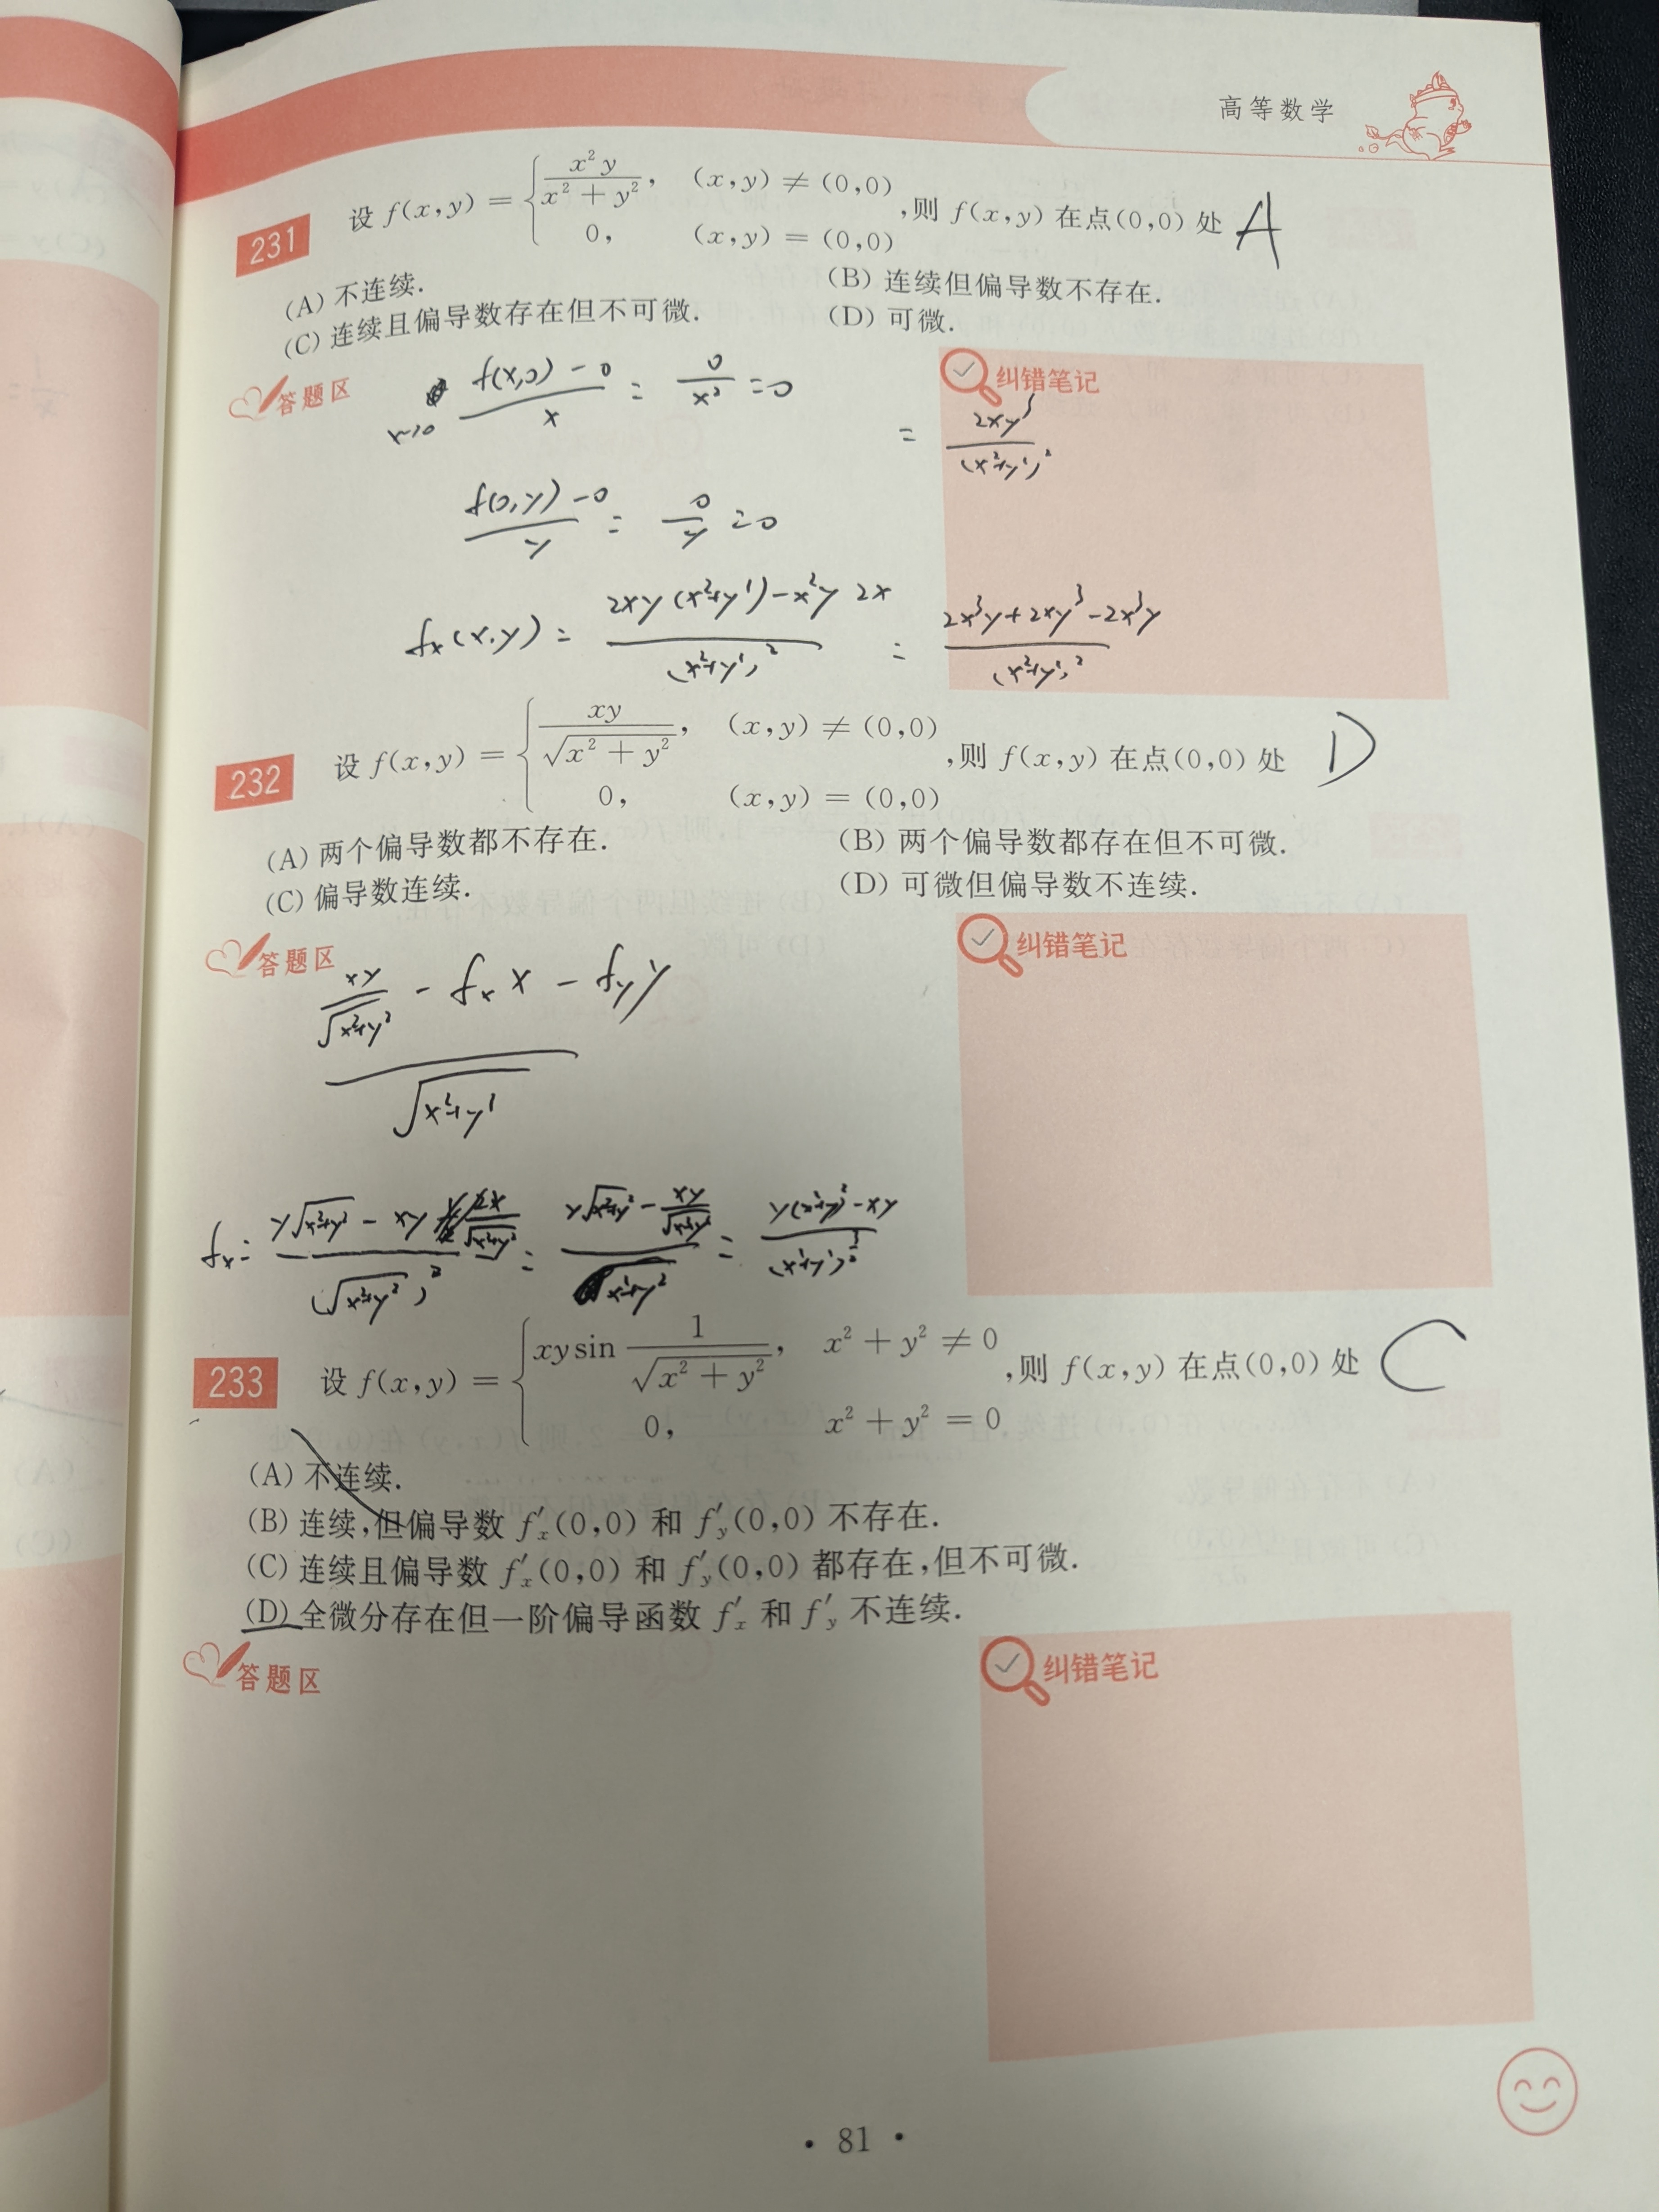 高等数学
231 设 f(x,y) = { x²y/(x² + y²), (x,y) ≠ (0,0)
0, (x,y) = (0,0) ,则 f(x,y) 在点(0,0) 处 A
(A) 不连续. (B) 连续但偏导数不存在.
(C) 连续且偏导数存在但不可微. (D) 可微.
答题区 纠错笔记
x→0 (f(x,0) − 0)/x = 0/x³ = 0
= 2xy³/(x²+y²)²
(f(0,y) − 0)/y = 0/y = 0
fx(x,y) = (2xy(x²+y²) − x²y 2x)/(x²+y²)² = (2x³y + 2xy³ − 2x³y)/(x²+y²)²
232 设 f(x,y) = { xy/√(x² + y²), (x,y) ≠ (0,0)
0, (x,y) = (0,0) ,则 f(x,y) 在点(0,0) 处 D
(A) 两个偏导数都不存在. (B) 两个偏导数都存在但不可微.
(C) 偏导数连续. (D) 可微但偏导数不连续.
答题区 纠错笔记
(xy/√(x²+y²) − fx x − fy y)/√(x²+y²)
fx = (y√(x²+y²) − xy /√(x²+y²))/(√(x²+y²))² = (y√(x²+y²) − xy/√(x²+y²))/(x²+y²) = (y(x²+y²)² − xy)/(x²+y²)
233 设 f(x,y) = { xy sin 1/√(x² + y²), x² + y² ≠ 0
0, x² + y² = 0 ,则 f(x,y) 在点(0,0) 处 C
(A) 不连续.
(B) 连续,但偏导数 f′x(0,0) 和 f′y(0,0) 不存在.
(C) 连续且偏导数 f′x(0,0) 和 f′y(0,0) 都存在,但不可微.
(D) 全微分存在但一阶偏导函数 f′x 和 f′y 不连续.
答题区 纠错笔记
• 81 •